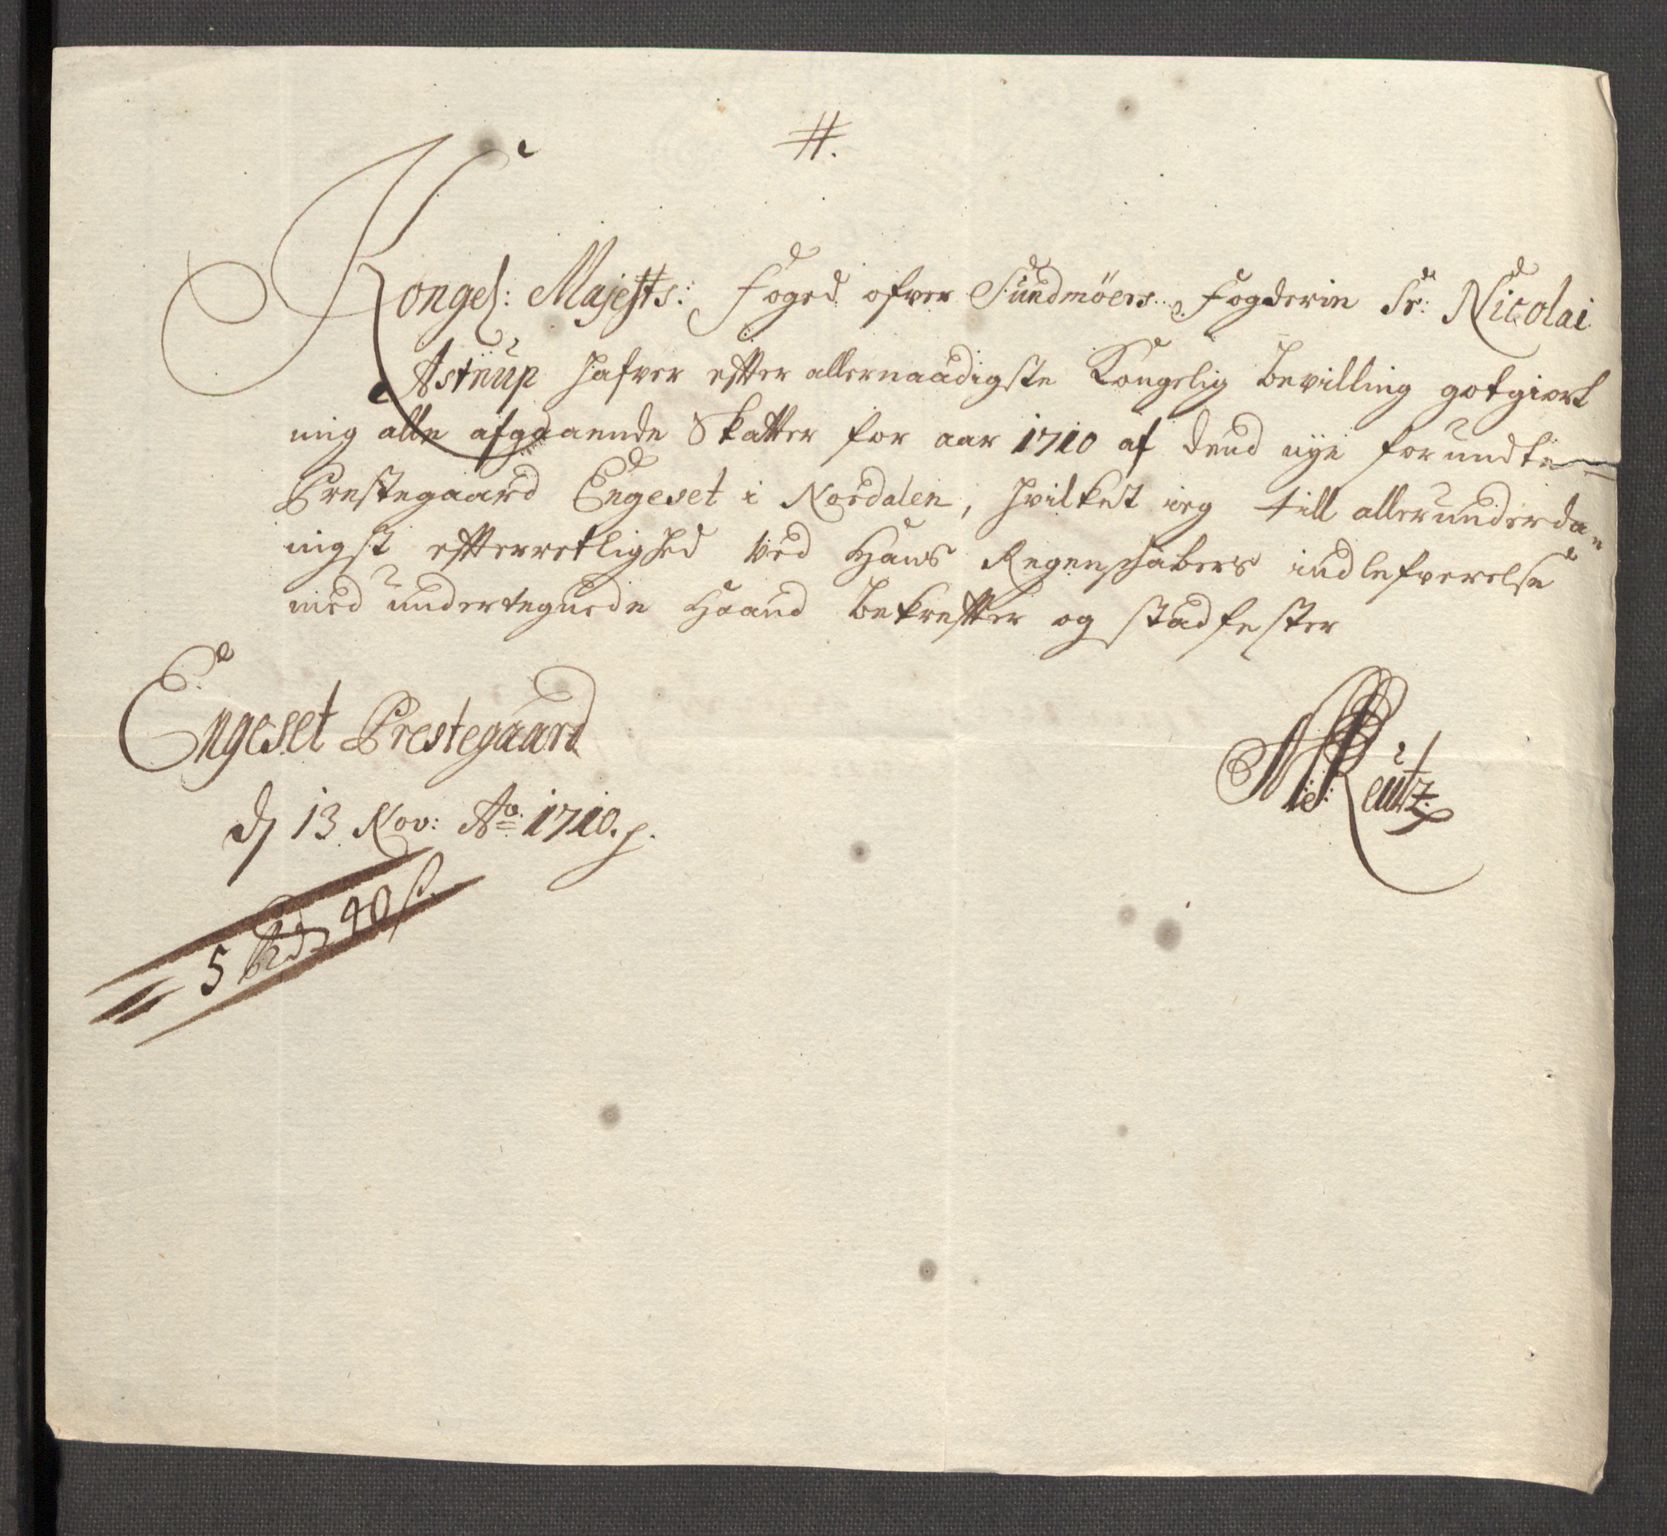 #.
Kongel: Majests: Foged ofver Sundmöers Fogderin Sr: Nicolai
Astrüp hafver efter allernaadigste Kongelig bevilling gotgiort
mig alle afgaaende Skatter for aar 1710 af dend nye forundte
Prestegaard Engeset i Nordalen, hvilket ieg till allerunderda-
nigst efterretlighed ved Hans Regenschabers indlefverelse
med undertegnede Haand bekrefter og stadfester
Engeset Prestegaard
d 13 Nov: Ao 1710.
Reutz
5 Rd 40 s.